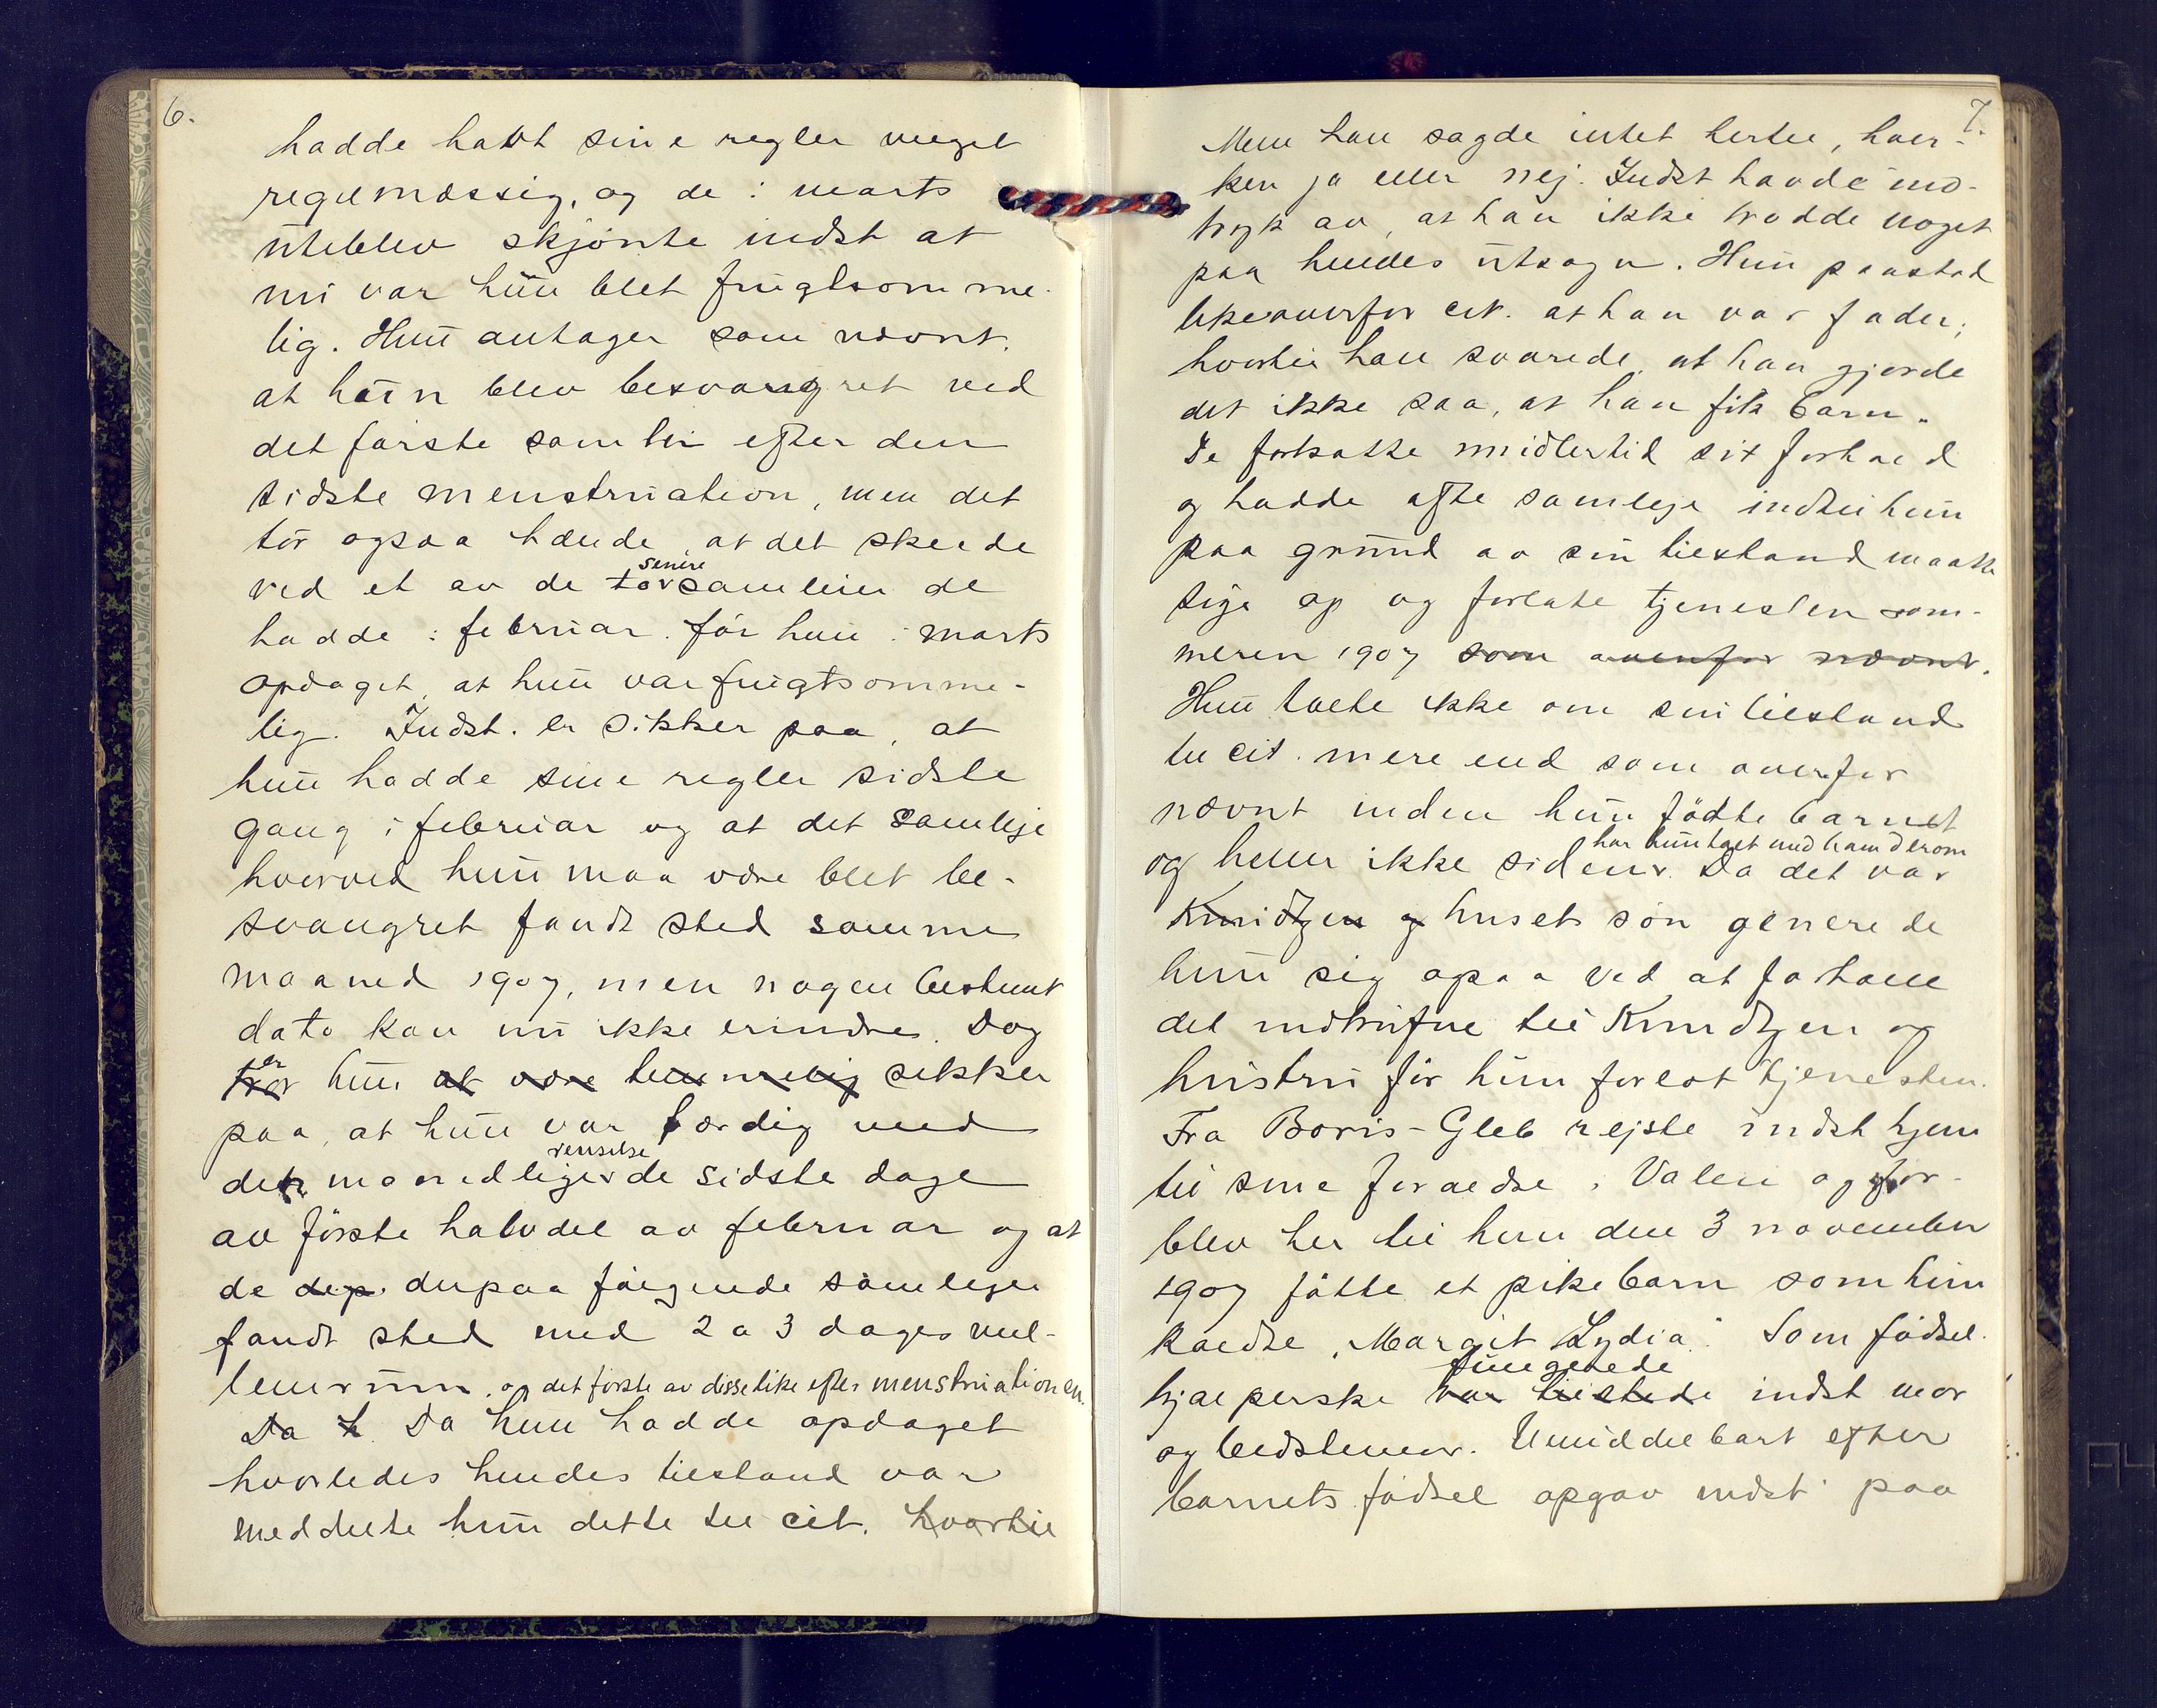 6.
hadde havt sine regler meget
regelmæssig, og da i marts
uteblev skjønte indst at
nu var hun blet frugtsomme-
lig. Hun antager som nævnt,
at hun blev besvangret ved
det første samlei efter den
sidste menstruation, men det
tør ogsaa hænde, at det skeede
ved et av de tør senere samleier de
hadde i februar før hun i marts
opdaget, at hun var frugtsomme-
lig. Indst. er sikker paa, at
hun hadde sine regler sidste
gang i februar og at det samleje
hvorved hun maa være blet be-
svangret fandt sted samme
maaned 1907, men nogen bestemt
dato kan nu ikke erindres. Dog
tror er hun at være temmelig sikker
paa, at hun var færdig med
den maanedlige renselse de sidste dage
av første halvdel av februar og at
de dep. derpaa følgende samlejer
fandt sted med 2 a 3 dages mel-
lemrum, og det første av disse like efter menstruationen.
Da h. Da hun hadde opdaget
hvorledes hendes tilstand var
meddelte hun dette til cit. hvortil
7.
Men han sagde intet hertil, hver-
ken ja eller nej. Indst havde ind-
tryk av, at han ikke trodde noget
paa hendes utsagn. Hun paastod
likeoverfor cit. at han var fader,
hvortil han svarede, at han gjorde
det ikke saa, at han fik barn.
De fortsatte midlertid sit forhold
og hadde ofte samleje indtil hun
paa grund av sin tilstand maatte
sige op og forlate tjenesten som-
meren 1907 som ovenfor nævnt.
Hun talte ikke om sin tilstand
til cit. mere end som ovenfor
nævnt inden hun fødte barnet
og heller ikke siden har hun talt med ham derom. Da det var
Knudtzen og huset søn generede
hun sig ogsaa ved at fortælle
det indtrufne til Knudtzen og
hustru før hun forlot tjenesten.
Fra Boris-Gleb rejste indst hjem
til sine forældre i Valen og for-
blev her til hun den 3 november
1907 fødte et pikebarn som hun
kaldte "Margit Lydia". Som fødsel-
hjælperske var tilstede fungerede indst mor
og bedstemor. Umiddelbart efter
barnets fødsel opgav indst paa